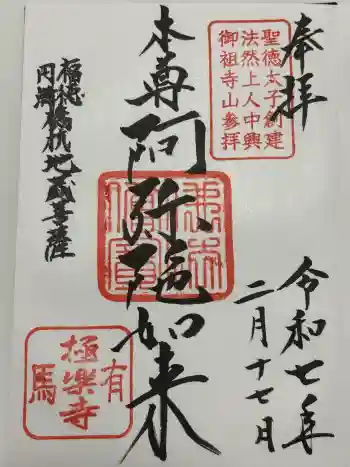 奉拝
聖徳太子創建
法然上人中興
御祖寺山参拝
本尊阿弥陀如来
令和七年
二月十七日
福徳
円満
地蔵菩薩
有馬
極楽寺